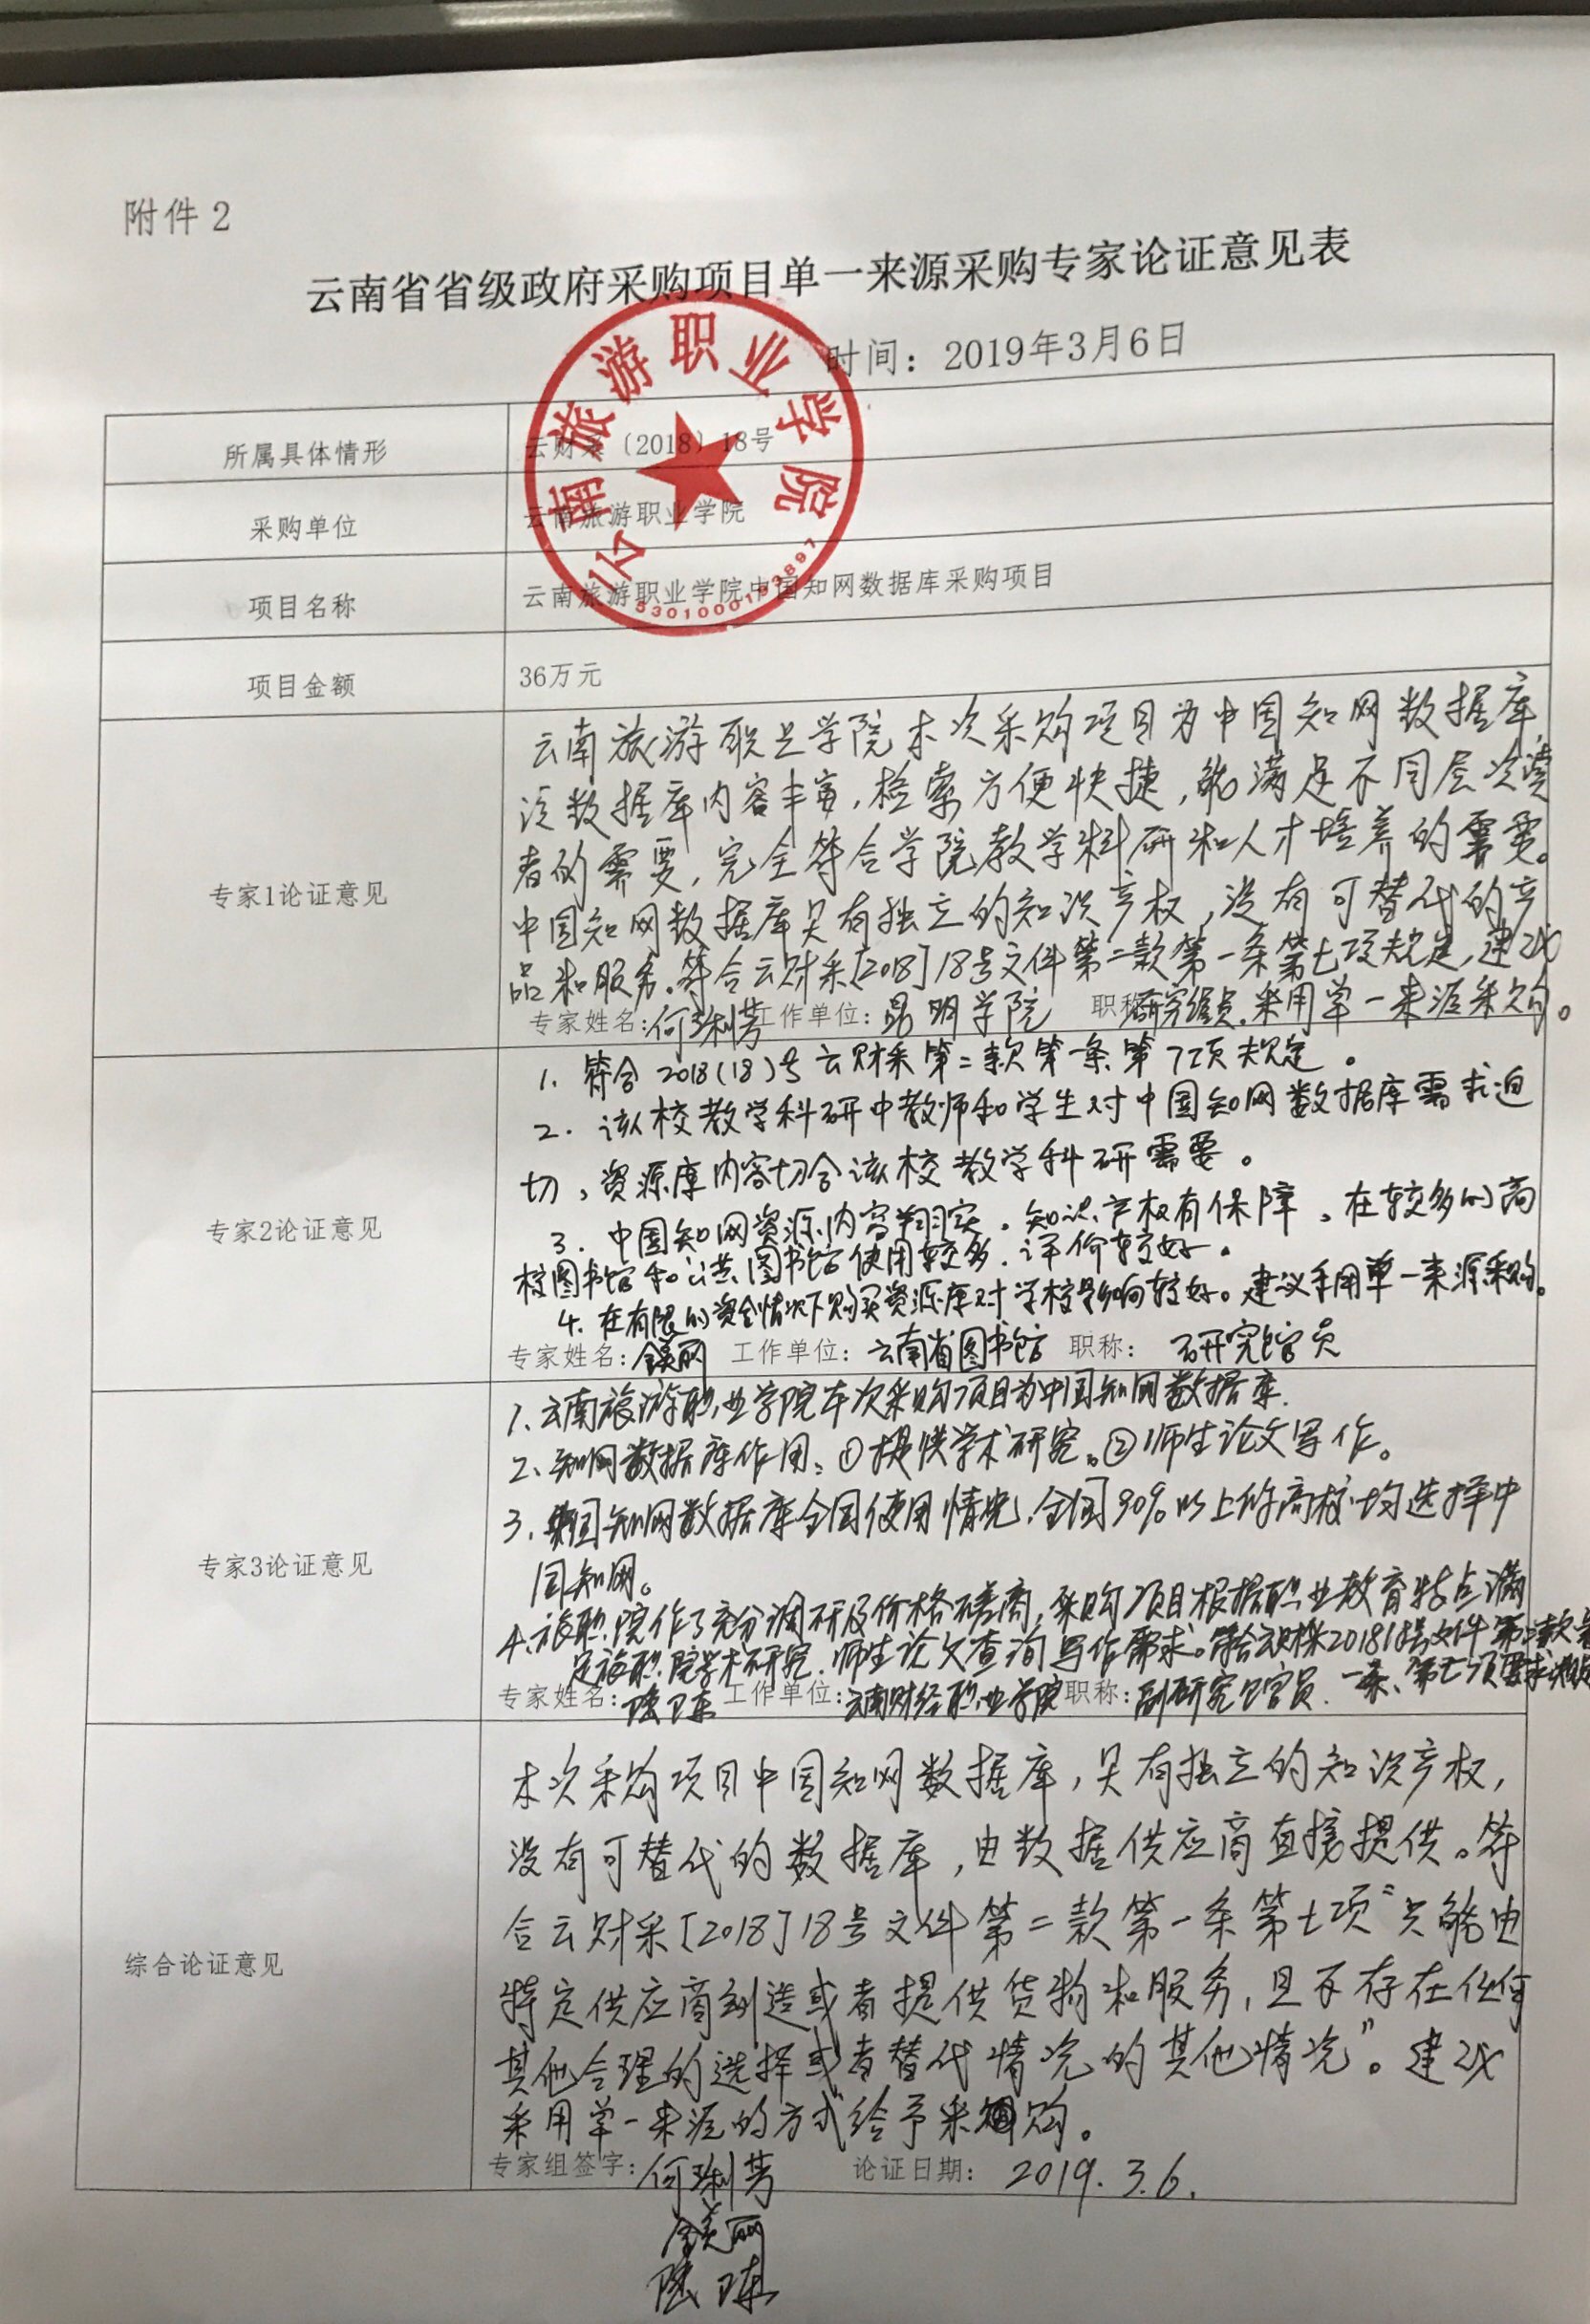 附件 2
云南省省级政府采购项目单一来源采购专家论证意见表
时间：2019年3月6日
云南旅游职业学院
所属具体情形
云财采〔2018〕18号
采购单位
云南旅游职业学院
项目名称
云南旅游职业学院中国知网数据库采购项目
项目金额
36万元
专家1论证意见
云南旅游职业学院本次采购项目为中国知网数据库,
该数据库内容丰富,检索方便快捷,能满足不同层次读
者的需要,完全符合学院教学科研和人才培养的需要。
中国知网数据库具有独立的知识产权,没有可替代的产
品和服务。符合云财采[2018]18号文件第二款第一条第七项规定,建议
采用单一来源采购。
专家姓名:何琳芳 工作单位:昆明学院 职称:研究馆员
专家2论证意见
1. 符合2018(18)号云财采第二款第一条第7项规定。
2. 该校教学科研中教师和学生对中国知网数据库需求迫
切,资源库内容切合该校教学科研需要。
3. 中国知网资源内容翔实。知识产权有保障。在较多的高
校图书馆和公共图书馆使用较多.评价较好。
4. 在有限的资金情况下购买资源库对学校影响较好。建议采用单一来源采购。
专家姓名: 美丽 工作单位:云南省图书馆 职称: 研究馆员
专家3论证意见
1、云南旅游职业学院本次采购项目为中国知网数据库.
2、知网数据库作用:①提供学术研究。②师生论文写作。
3、中国知网数据库全国使用情况,全国90%以上的高校均选择中
国知网。
4、旅职院作了充分调研及价格磋商,采购项目根据职业教育特点满
足旅职院学术研究.师生论文查询写作需求。符合云财采201818号文件第二款第
一条、第七项要求
专家姓名: 卫东 工作单位:云南财经职业学院 职称:副研究馆员.
综合论证意见
本次采购项目中国知网数据库,具有独立的知识产权,
没有可替代的数据库,由数据供应商直接提供。符
合云财采[2018]18号文件第二款第一条第七项“只能由
特定供应商制造或者提供货物和服务,且不存在任何
其他合理的选择或者替代情况的其他情况”。建议
采用单一来源的方式给予采购。
专家组签字:何琳芳 论证日期: 2019.3.6.
美丽
卫东